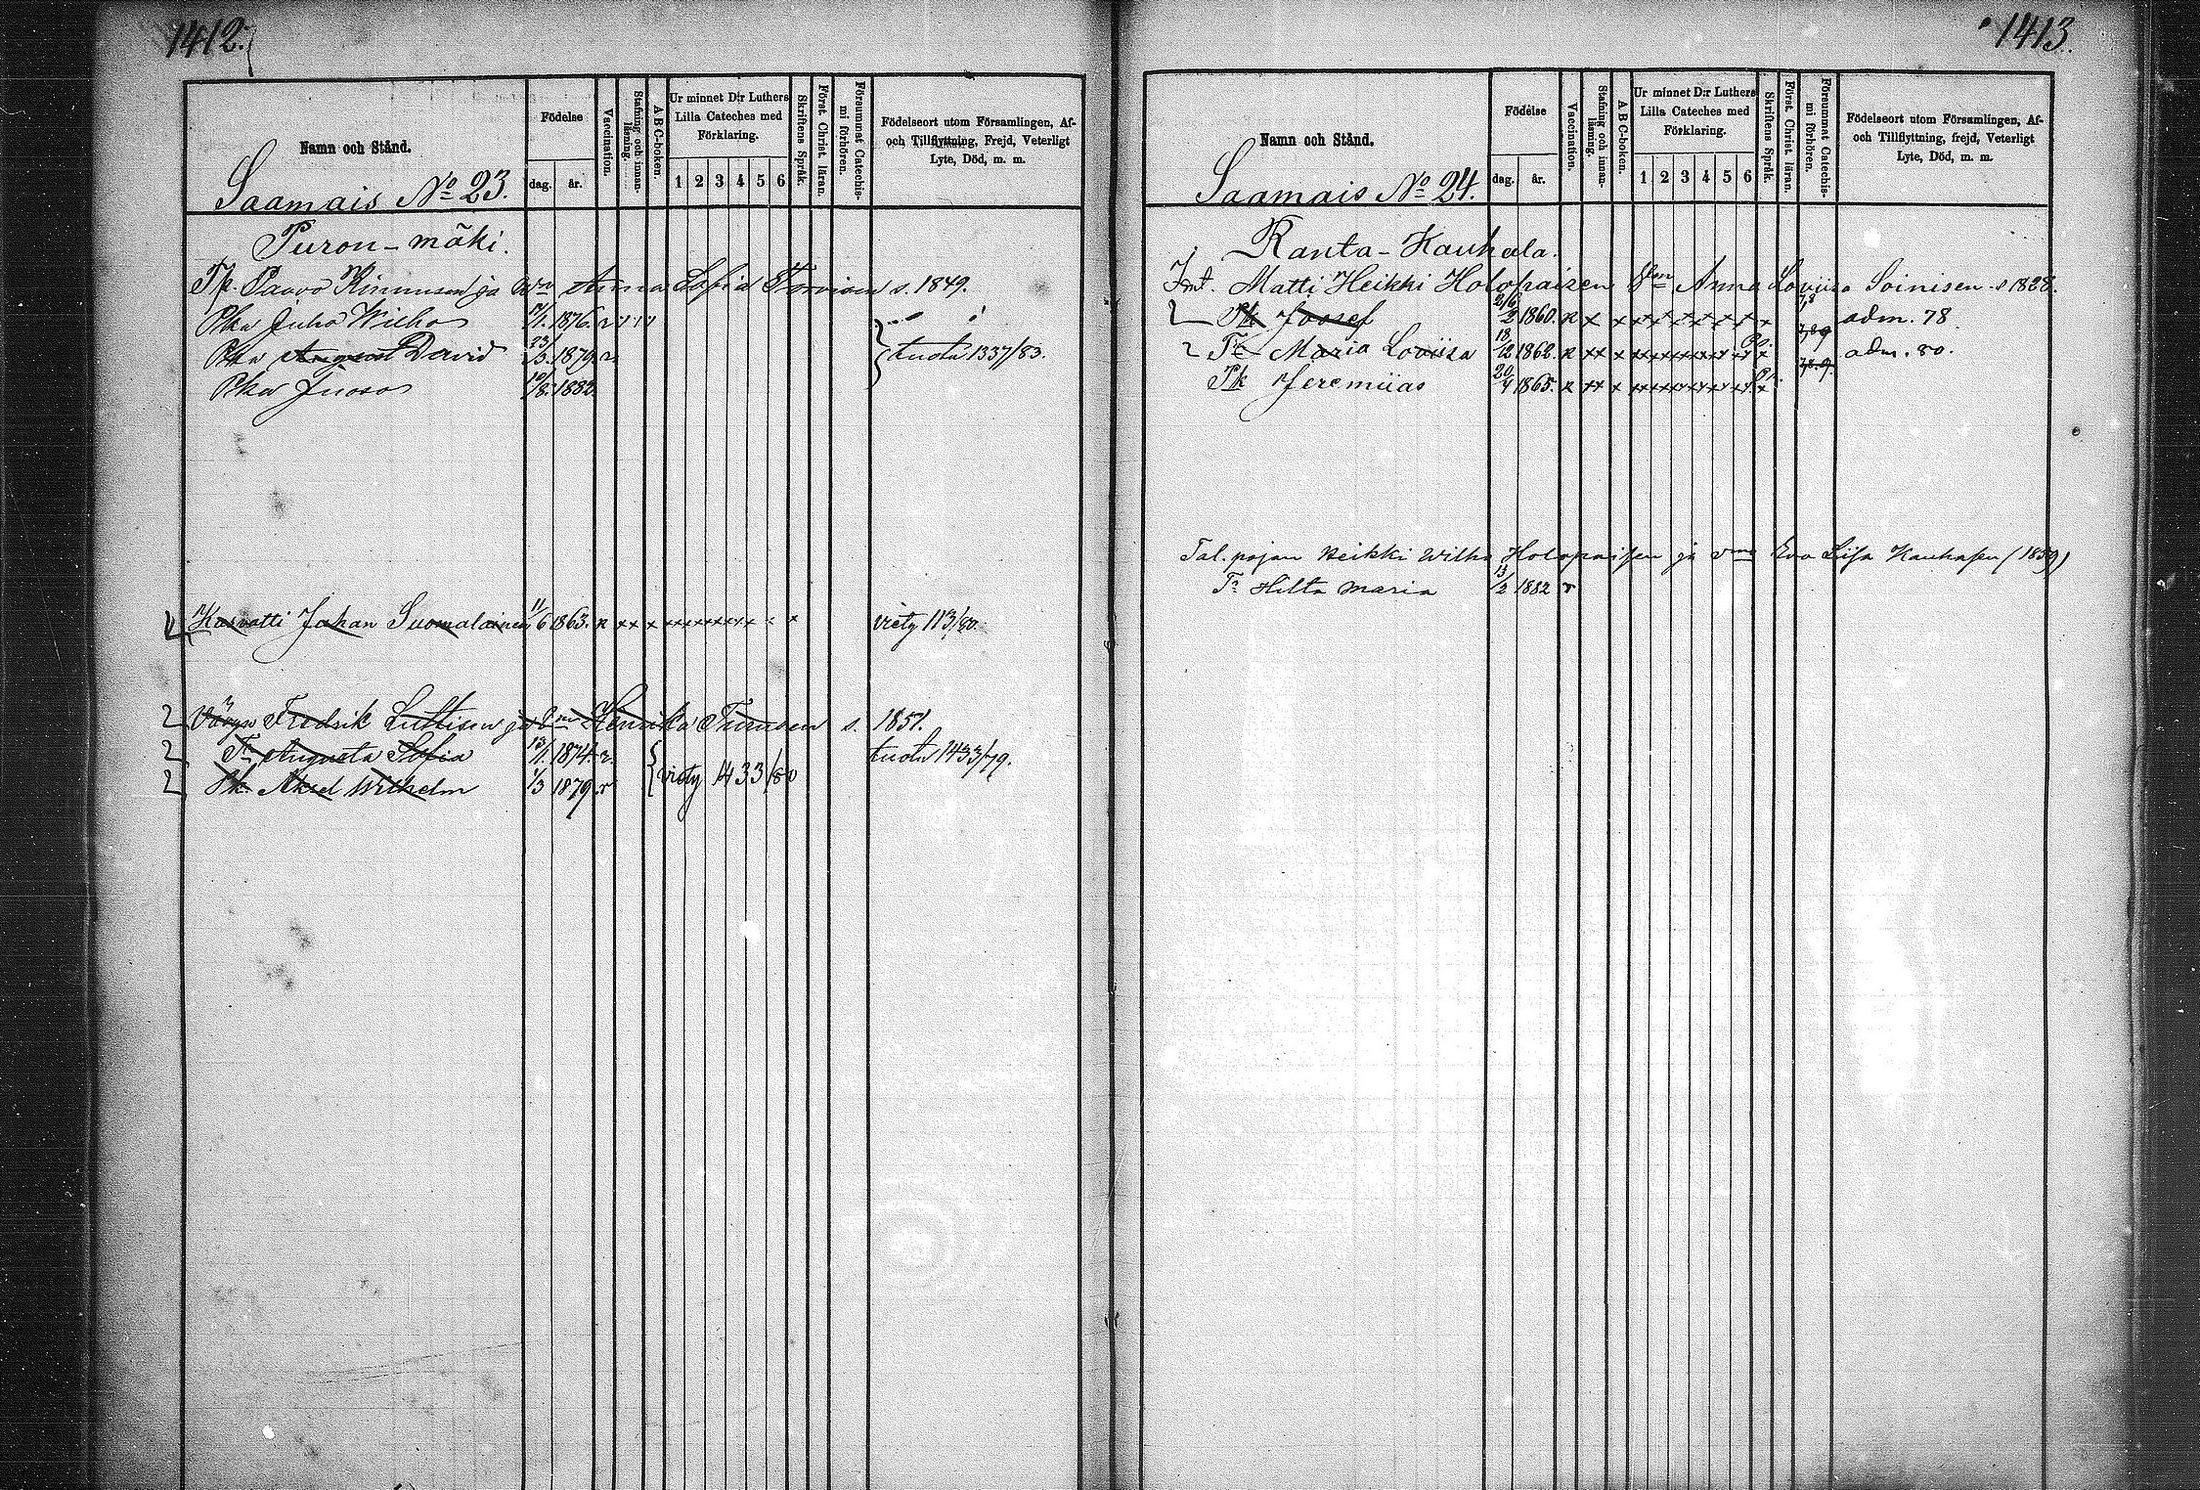 1412.
Namn och Stånd.
Födelse
dag. år.
Vaccination.
Stafning och innanläsning.
A B C-boken.
Ur minnet D:r Luthers
Lilla Cateches med
Förklaring.
1 2 3 4 5 6
Skriftens Språk.
Först. Christ. läran.
Försummat Catechismi förhören.
Födelseort utom Församlingen, Af-
och Tillflyttning, Frejd, Veterligt
Lyte, Död, m. m.
Saamais No 23.
Puron-mäki.
Tp. Paavo Kinnusen ja Anna Sofia s. 1849.
Pka Juho Wilho 1876.
Pka August David 23/3 1879 tuota 1337/83.
Pka Juoso 1882.
Kasvatti Johan Suomalainen 11/6 1863. viety 113/80.
Fredrik Luttisen ja Henrika Turusen s. 1851.
Tr Augusta Sofia 13/11 1874 tuota 1433/79.
Pk. Aksel Wilhelm 1/3 1879 viety 1433/80
1413.
Namn och Stånd.
Födelse
dag. år.
Vaccination.
Stafning och innanläsning.
A B C-boken.
Ur minnet D:r Luthers
Lilla Cateches med
Förklaring.
1 2 3 4 5 6
Skriftens Språk.
Först. Christ. läran.
Försummat Catechismi förhören.
Födelseort utom Församlingen, Af-
och Tillflyttning, frejd, Veterligt
Lyte, Död, m. m.
Saamais No 24.
Ranta-Kauhala.
Int. Matti Heikki Holopaisen Anna Loviisa Soinisen s 1828.
Pk Joosef 26/2 1860. adm. 78
Tr Maria Loviisa 18/12 1862. adm. 80.
Pk Jeremiias 20/4 1865.
Tal. pojan Heikki Wilho Holopaisen ja vmo Eva Lisa Kauhasen (1859)
Tr Hilta Maria 13/2 1882